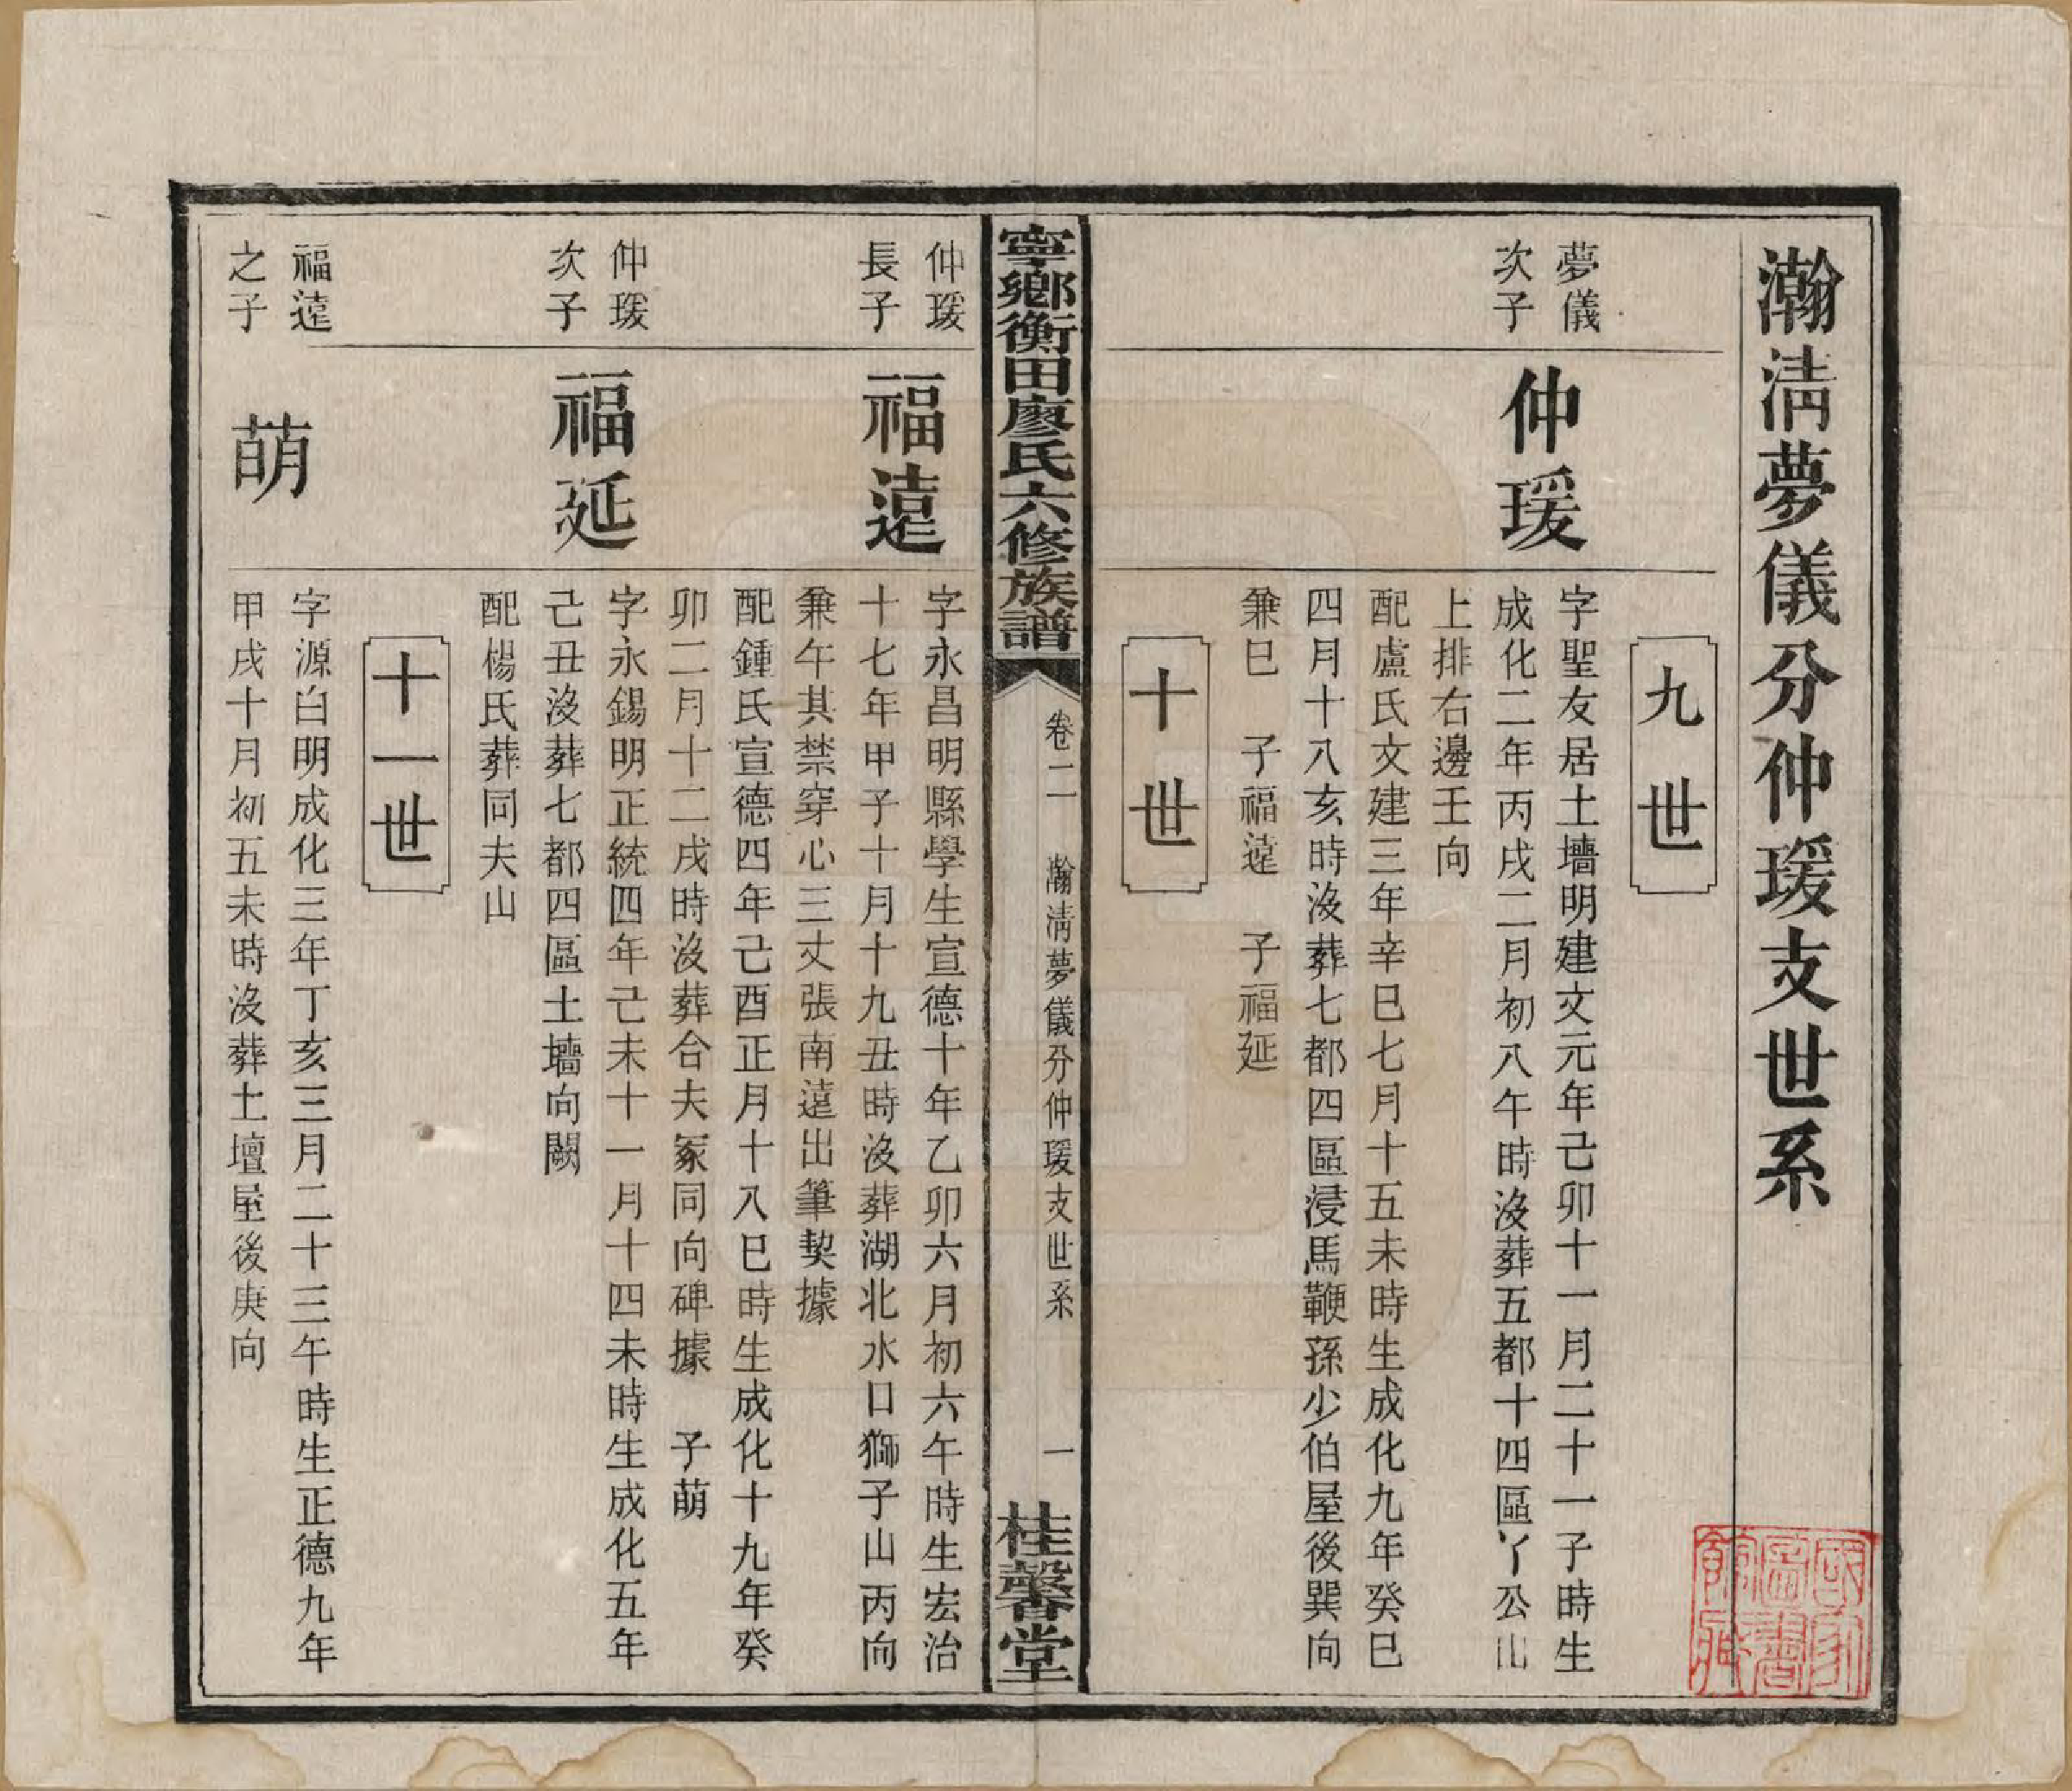 瀚淸夢儀分仲瑗支世系
九世
夢儀
次子
仲瑗
字聖友居土墻明建文元年己卯十一月二十一子時生
成化二年丙戌二月初八午時沒葬五都十四區丫公山
上排右邊壬向
配盧氏文建三年辛巳七月十五未時生成化九年癸巳
四月十八亥時沒葬七都四區浸馬鞭孫少伯屋後巽向
兼巳　子福遠　子福延
十世
寧鄉衡田廖氏六修族譜
卷二　瀚淸夢儀分仲瑗支世系　一
桂馨堂
仲瑗
長子
福遠
字永昌明縣學生宣德十年乙卯六月初六午時生宏治
十七年甲子十月十九丑時沒葬湖北水口獅子山丙向
兼午其禁穿心三丈張南遠出筆契據
配鍾氏宣德四年己酉正月十八巳時生成化十九年癸
卯二月十二戌時沒葬合夫冢同向碑據　子萌
仲瑗
次子
福延
字永錫明正統四年己未十一月十四未時生成化五年
己丑沒葬七都四區土墻向闕
配楊氏葬同夫山
十一世
福遠
之子
萌
字源白明成化三年丁亥三月二十三午時生正德九年
甲戌十月初五未時沒葬土壇屋後庚向
國家
圖書
館藏